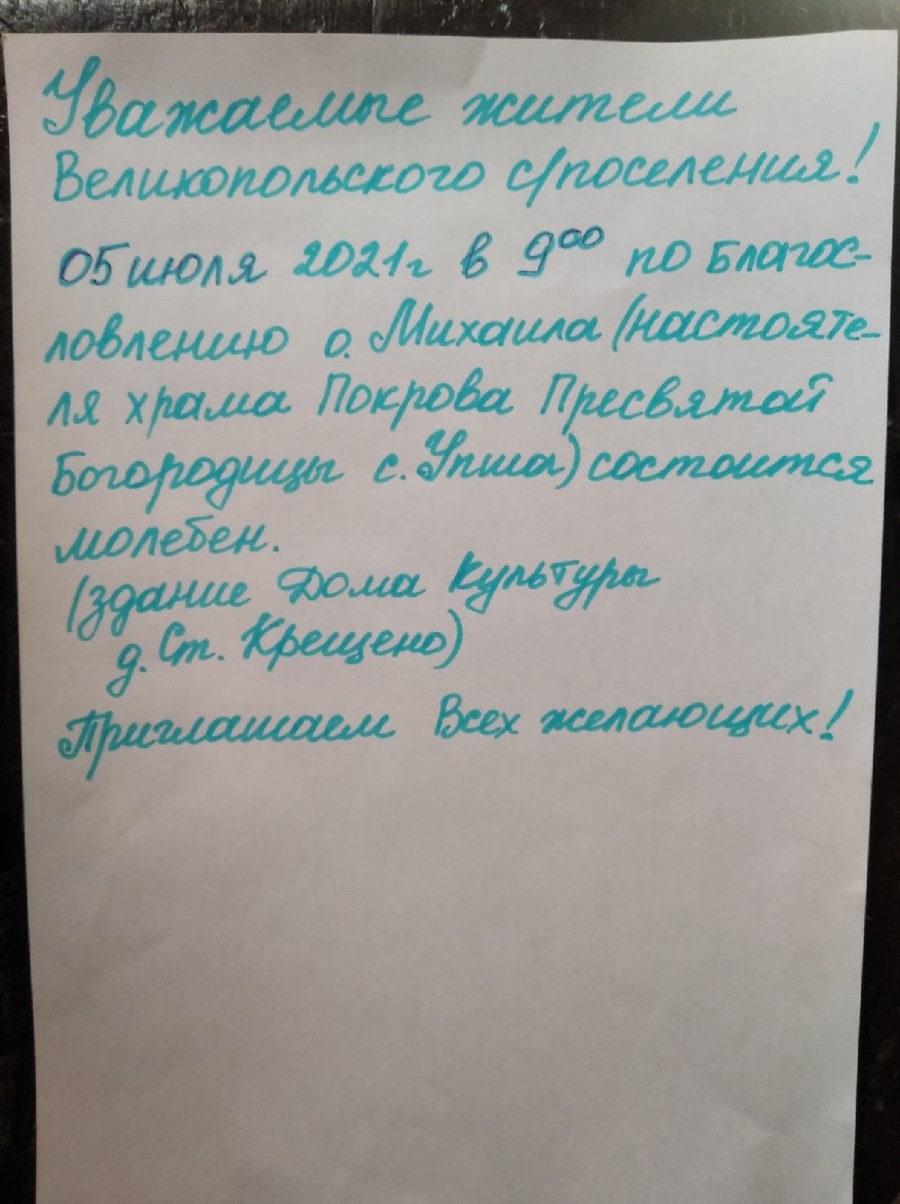 Уважаемые жители
Великопольского с/поселения!
05 июля 2021г в 9⁰⁰ по благос-
ловлению о. Михаила (настояте-
ля храма Покрова Пресвятой
Богородицы с. Упша) состоится
молебен.
(здание Дома Культуры
д. Ст. Крещено)
Приглашаем Всех желающих!